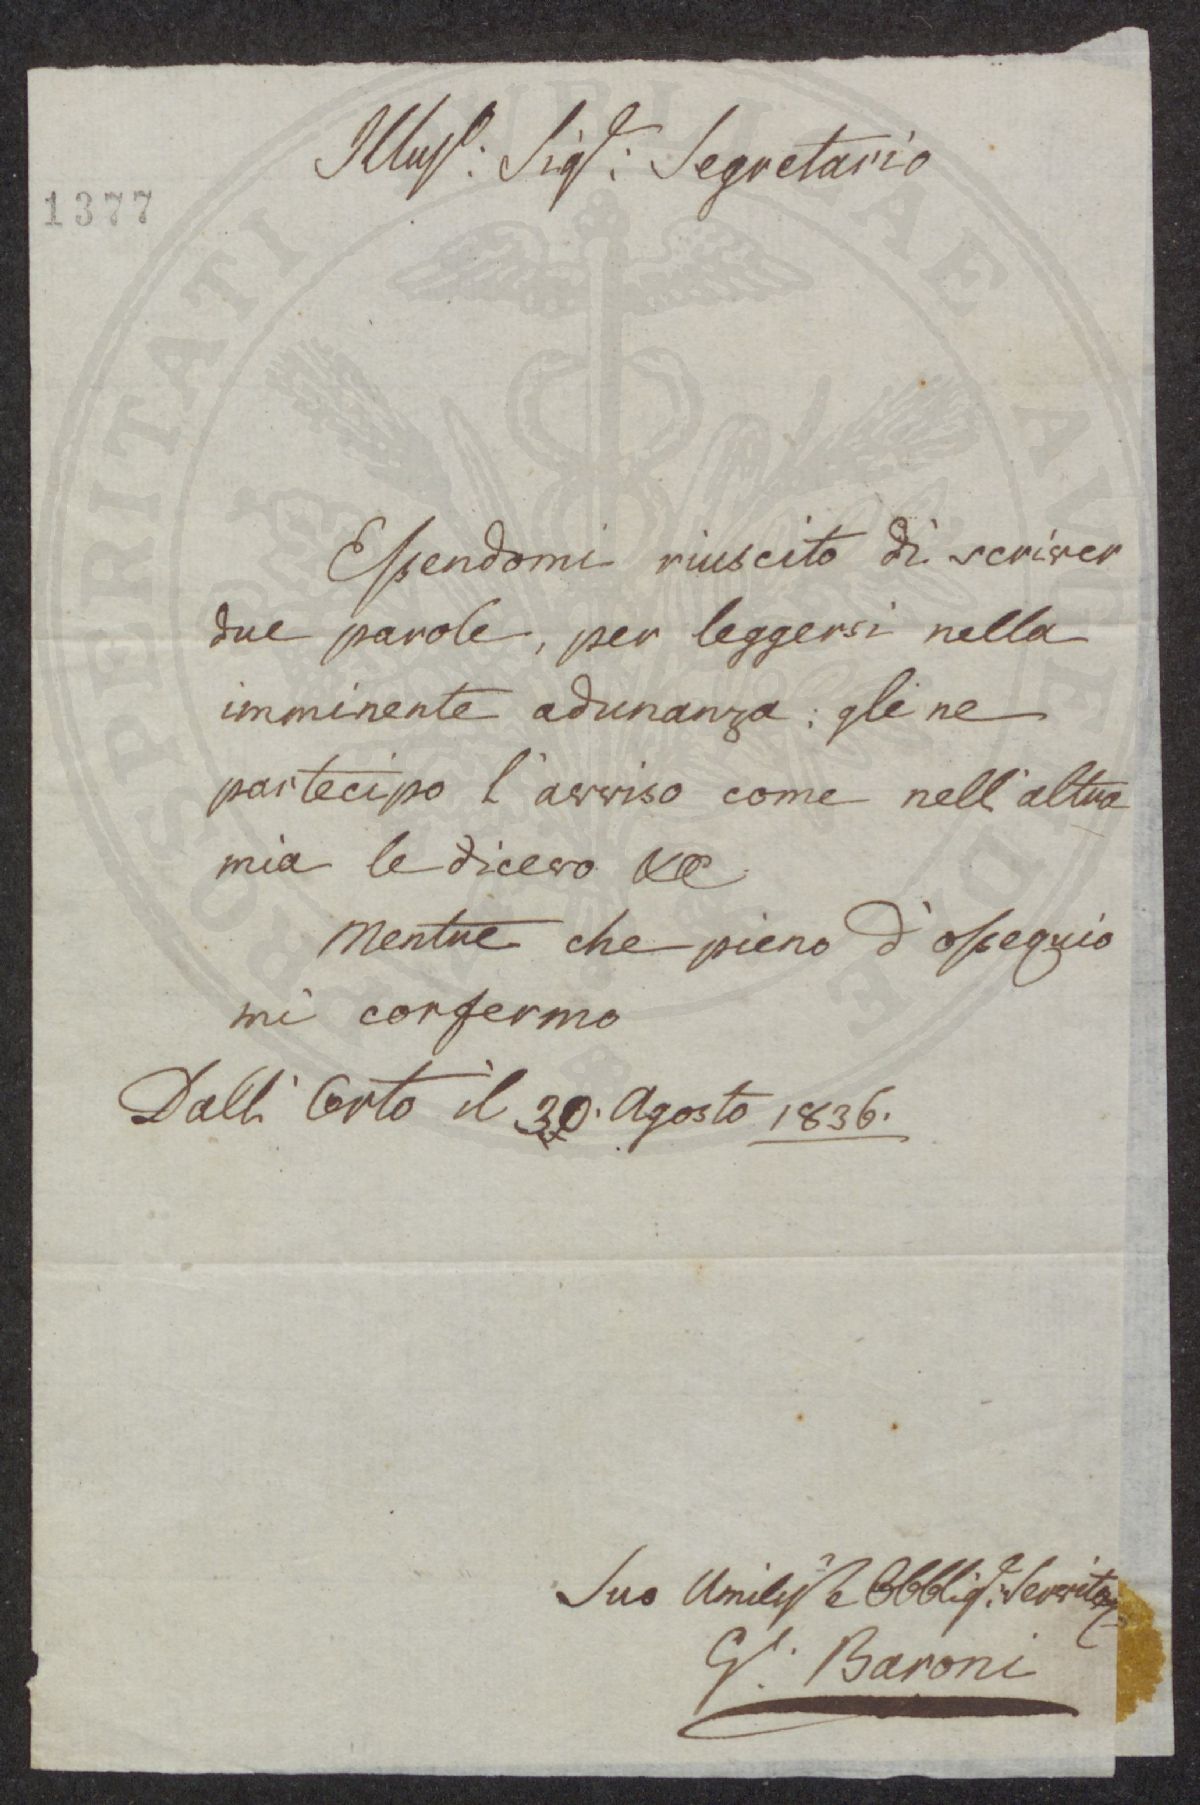 Illus.º: Sig.e: Segretario
1377
Essendomi riuscito di scriver
due parole, per leggersi nella
imminente adunanza: gline
partecipo l'avviso come nell'altra
mia le dicevo &c
Mentre che pieno d'ossequio
mi confermo
Dall' Orto il 30. Agosto 1836.
Suo Umiliss.º e Obblig.º: Servitore
G.: Baroni
PROSPERITATI AUGENDAE